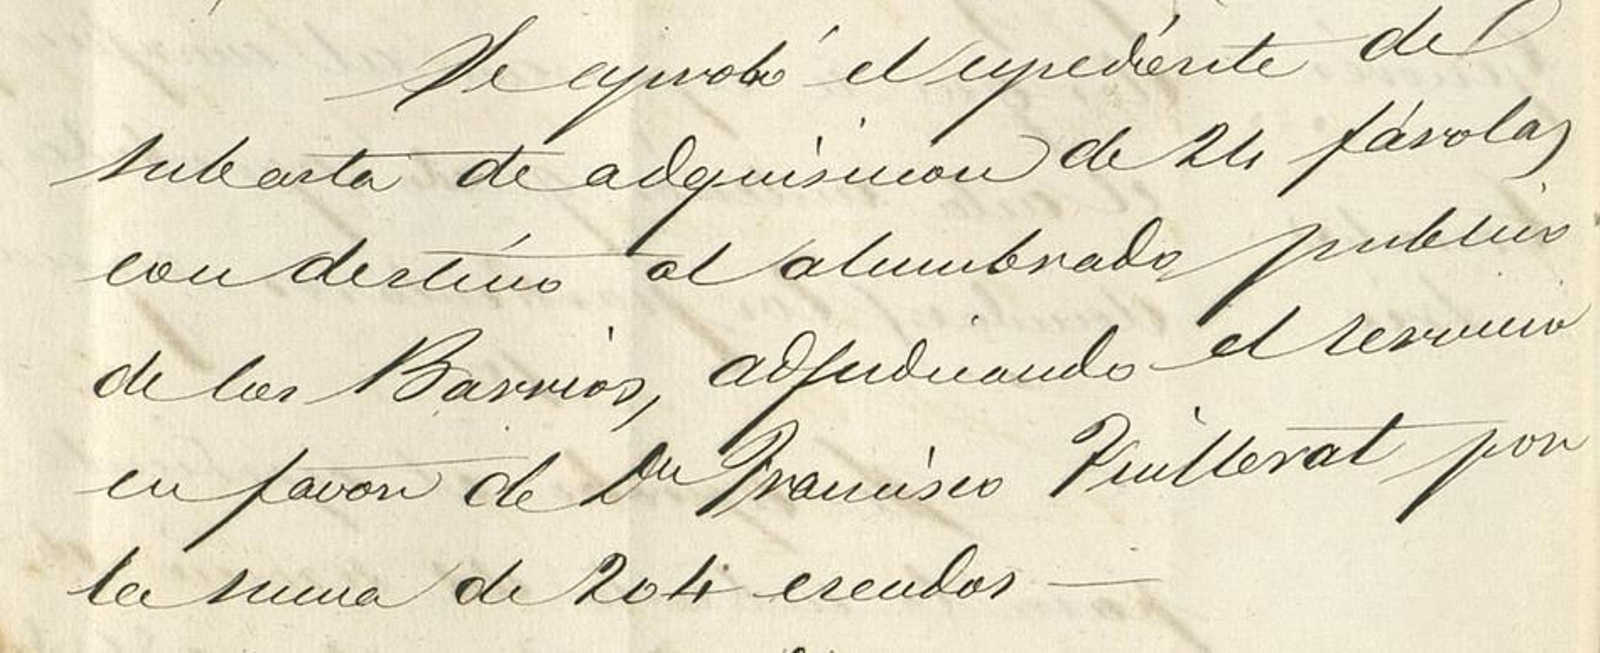 Se aprobó el expediente de
subasta de adquisicion de 24 fárolas
con destino al alumbrado publico
de los Barrios, adjudicando el servicio
en favor de Dn Francisco Fuillerat por
la suma de 204 escudos —